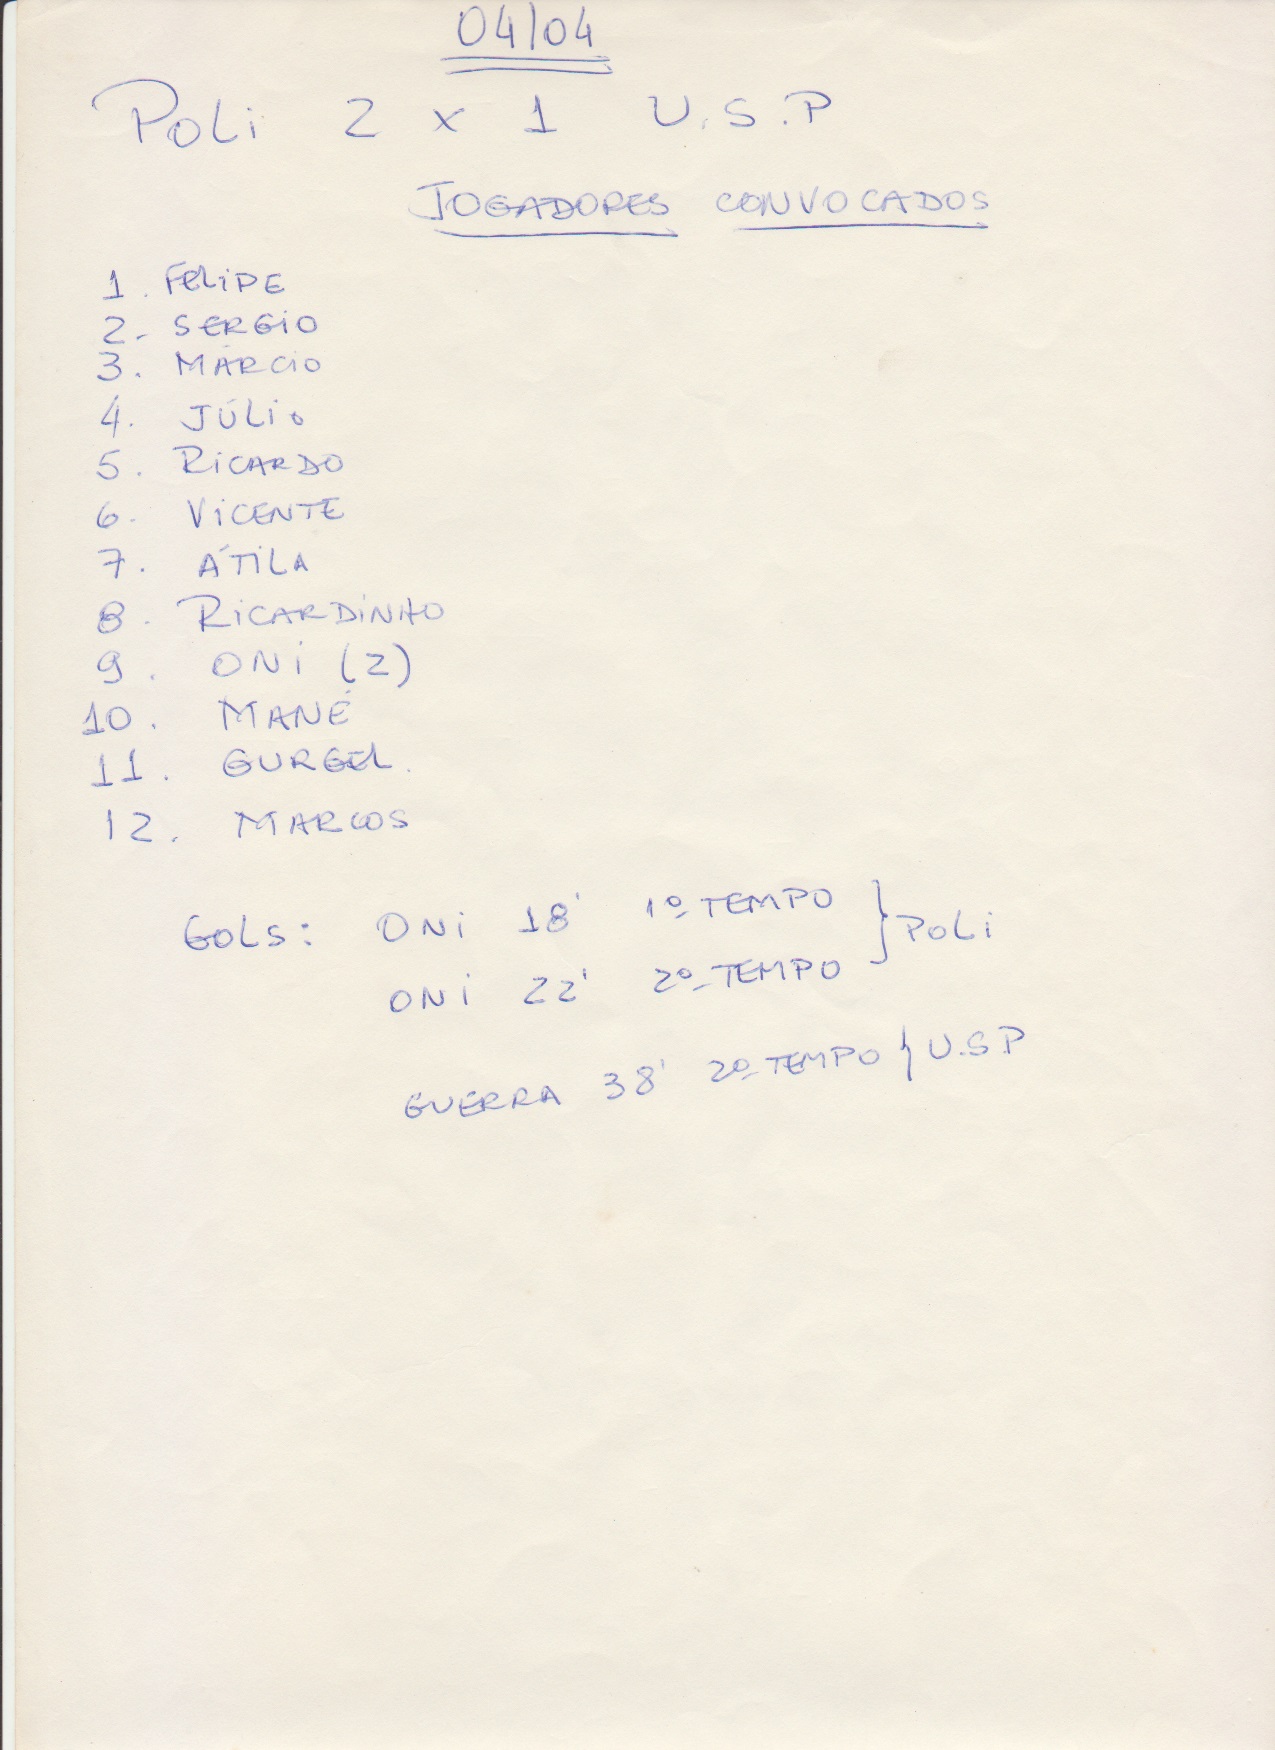 04/04
Poli 2 x 1 U.S.P
JOGADORES CONVOCADOS
1. FELIPE
2- SERGIO
3. MÁRCIO
4. JÚLIO
5. RICARDO
6. VICENTE
7. ÁTILA
8. RICARDINHO
9. ONI (2)
10. MANÉ
11. GURGEL.
12. MARCOS
GOLS: ONI 18' 1º TEMPO } POLI
ONI 22' 2º TEMPO
GUERRA 38' 2º TEMPO } U.S.P